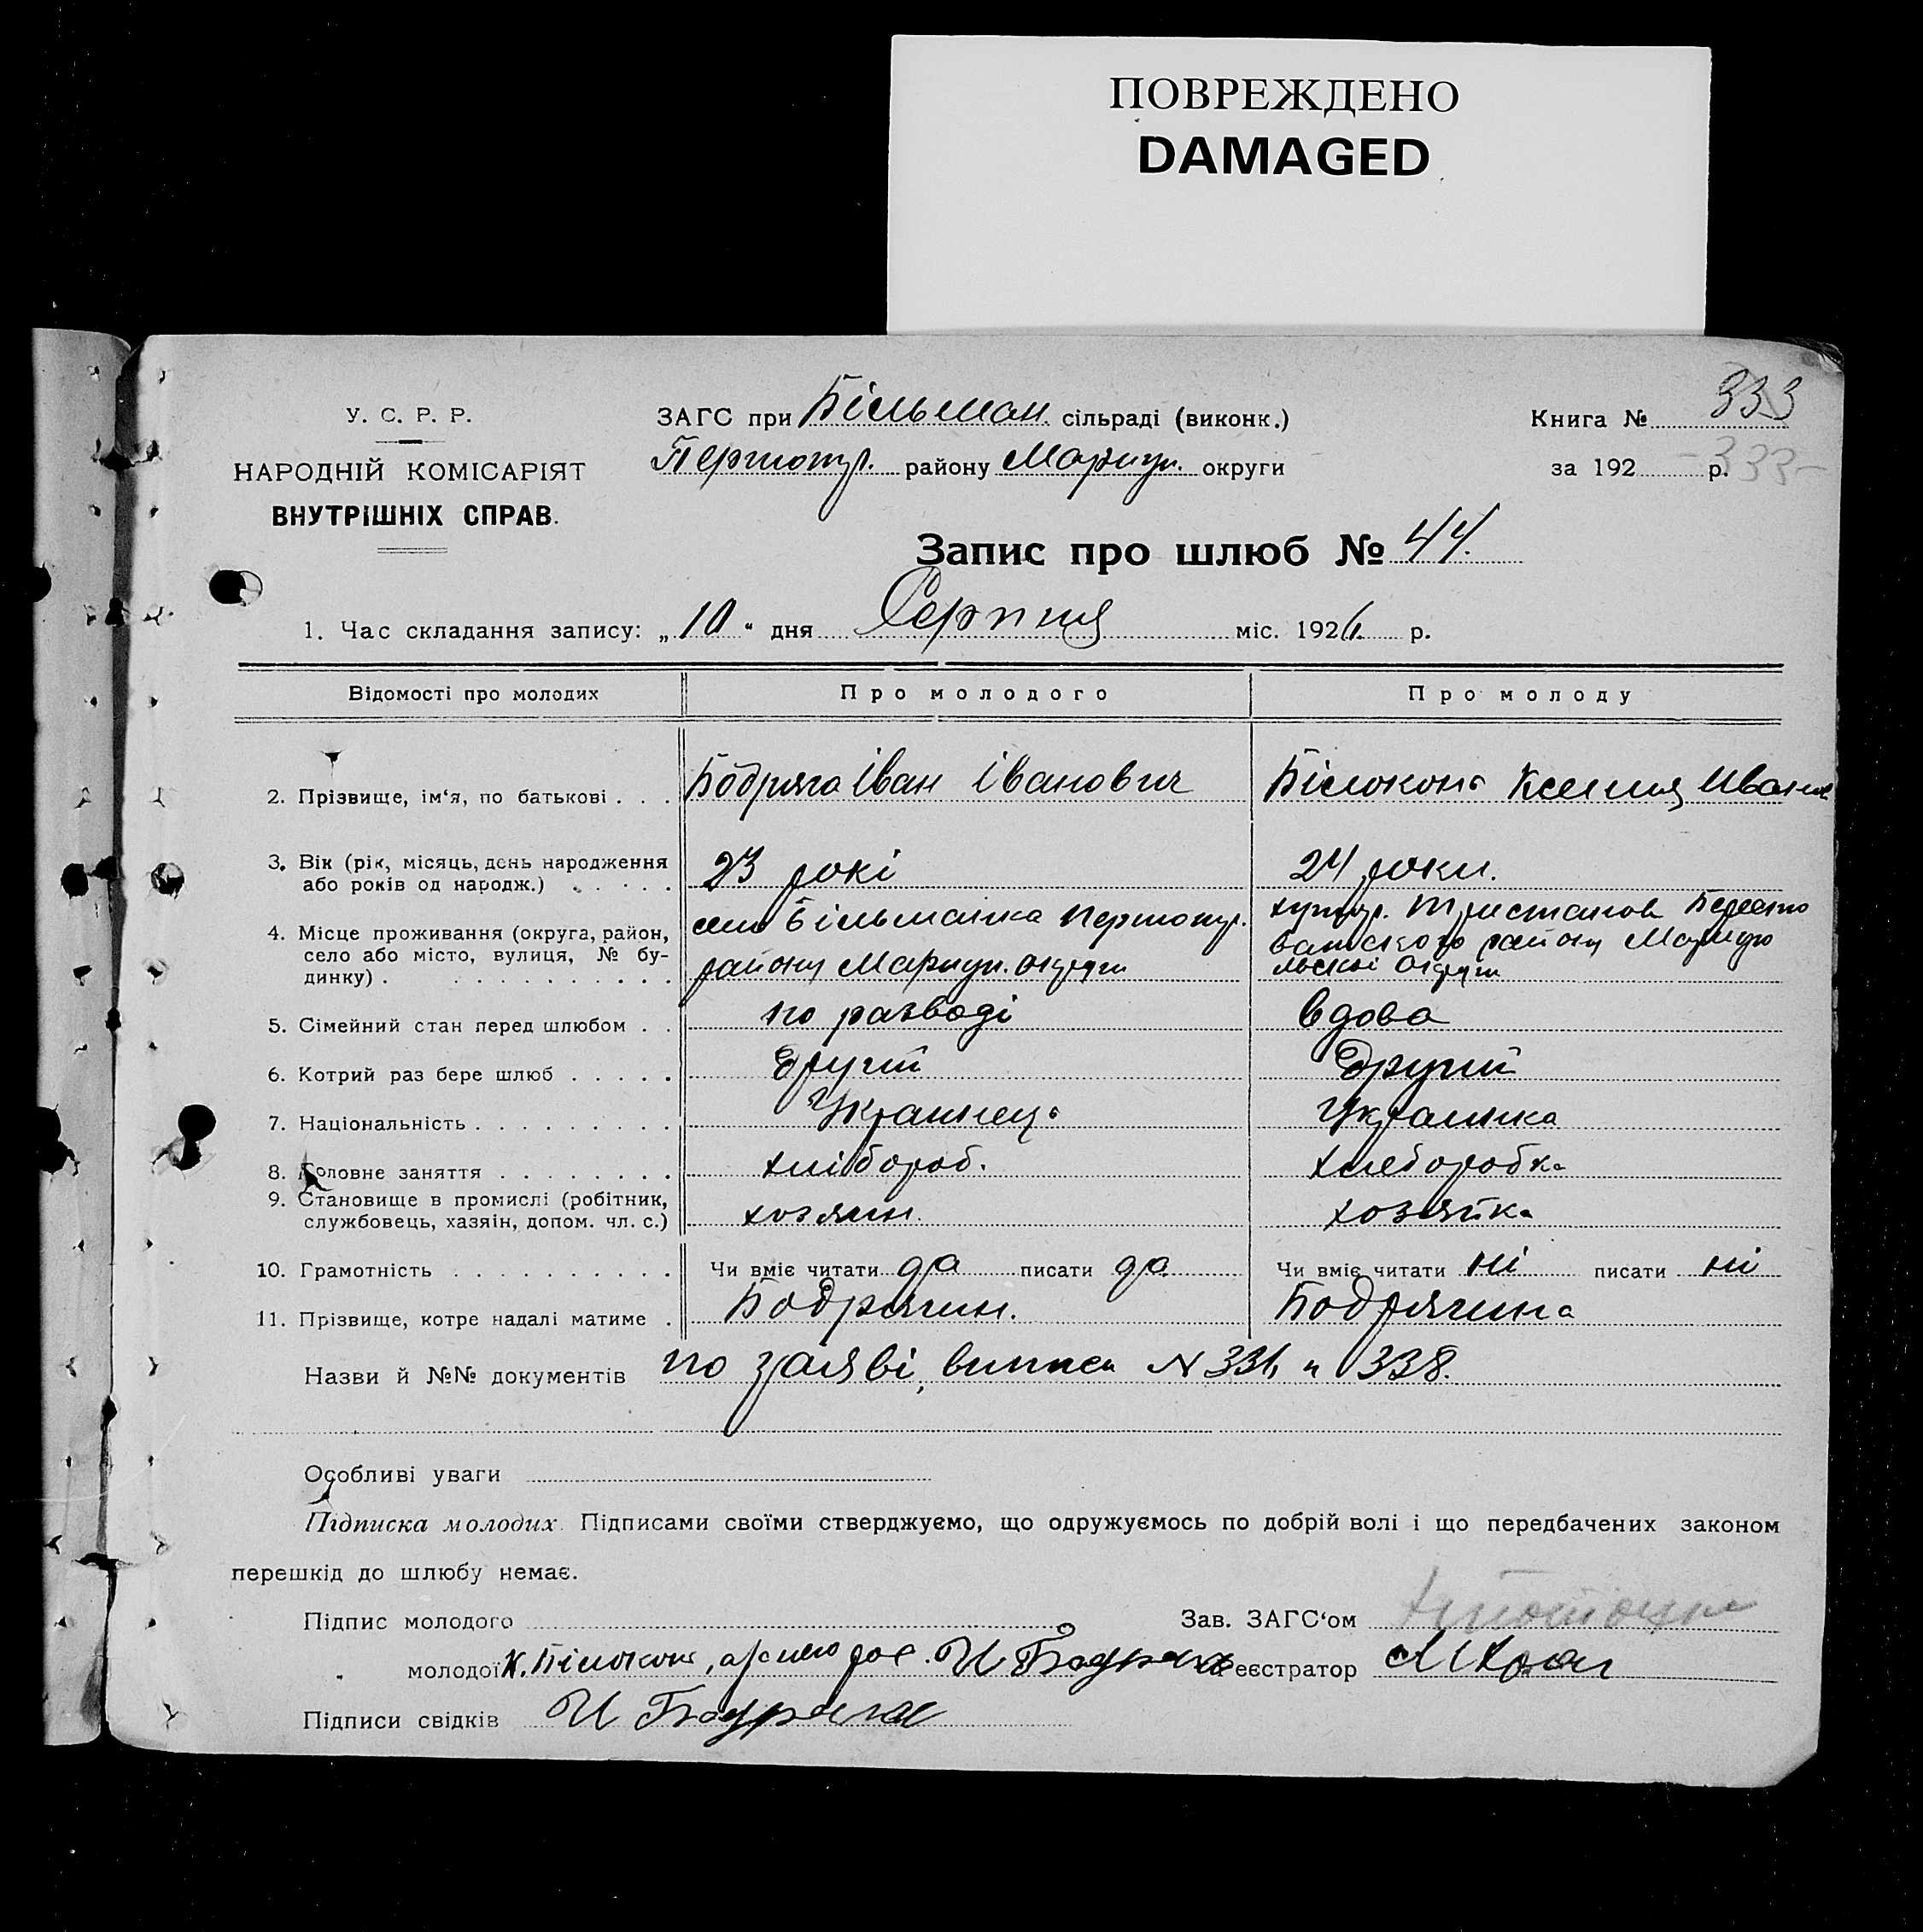 ПОВРЕЖДЕНО
DAMAGED
У. С. Р. Р.
НАРОДНІЙ КОМІСАРІЯТ
ВНУТРІШНІХ СПРАВ.
ЗАГС при Більман. сільраді (виконк.)
район у Мариуп. округи
Книга № 333
за 192 р. -333-
Запис про шлюб № 44.
1. Час складання запису: „10“ дня Серпня міс. 1926. р.
Відомості про молодих
Про молодого
Про молоду
2. Прізвище, ім‘я, по батькові . . .
Бодряга Іван Іванович
Білоконь Ксения
3. Вік (рік, місяць, день народження
або років од народж.) . . . . .
23 рокі
24 роки.
4. Місце проживання (округа, район,
село або місто, вулиця, № бу-
динку) . . . . . . . . . . .
село Більманка
району Мариуп. округи
району
округи
5. Сімейний стан перед шлюбом . .
по разводі
вдова
6. Котрий раз бере шлюб . . . . .
другий
другий
7. Національність . . . . . . . . .
Украинець
Украинка
8. Головне заняття . . . . . . . .
хлібороб.
хлеборобка
9. Становище в промислі (робітник,
службовець, хазяїн, допом. чл. с.)
хозяин.
хозяйка
10. Грамотність . . . . . . . . . .
Чи вміє читати да писати да
Чи вміє читати ні писати ні
11. Прізвище, котре надалі матиме .
Бодрягин.
Бодрягина
Назви й №№ документів по заяві, N 338.
Особливі уваги
Підписка молодих. Підписами своїми стверджуємо, що одружуємось по добрій волі і що передбачених законом
перешкід до шлюбу немає.
Підпис молодого
Зав. ЗАГС‘ом
молодої К. Білоконь, И Бодряга
Реєстратор
Підписи свідків И Бодряга